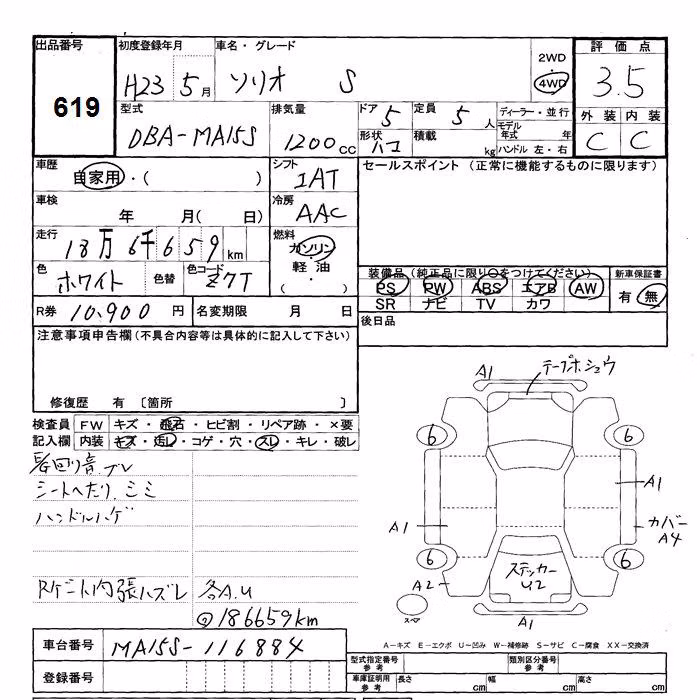 出品番号 初度登録年月 車名・グレード 評価点
619 H23 5月 ソリオ S 2WD 4WD 3.5
型式 排気量 ドア 定員 ディーラー・並行 外装 内装
DBA-MA15S 1200cc 5 5人 モデル年式 年 C C
形状 ハコ 積載 kg ハンドル 左・右
車歴 シフト セールスポイント (正常に機能するものに限ります)
自家用・( ) IAT
車検 冷房
年 月( 日) AAC
走行 燃料
18万6千659km ガソリン・軽油
色 色替 色コード ( ) 装備品(純正品に限り○をつけてください) 新車保証書
ホワイト Z7T PS PW ABS エアB AW 有 無
SR ナビ TV カワ
R券 10,900円 名変期限 月 日 後日品
注意事項申告欄(不具合内容等は具体的に記入して下さい)
修復歴 有 〔箇所 〕
検査員 FW キズ・飛石・ヒビ割・リペア跡・×要
記入欄 内装 キズ・汚レ・コゲ・穴・スレ・キレ・破レ
シートヘタリ、シミ
ハンドルハゲ
Rゲート内張ハズレ 各A.U
186659km
A1 テープホシュウ
6 6
A1
A1 カバー A4
6 6
A2 ステッカー U2
スペア A1
車台番号 MA15S-116884
A-キズ E-エクボ U-凹み W-補修跡 S-サビ C-腐食 XX-交換済
登録番号 型式指定番号 参考 類別区分番号 参考
車庫証明用 参考 長さ cm 幅 cm 高さ cm